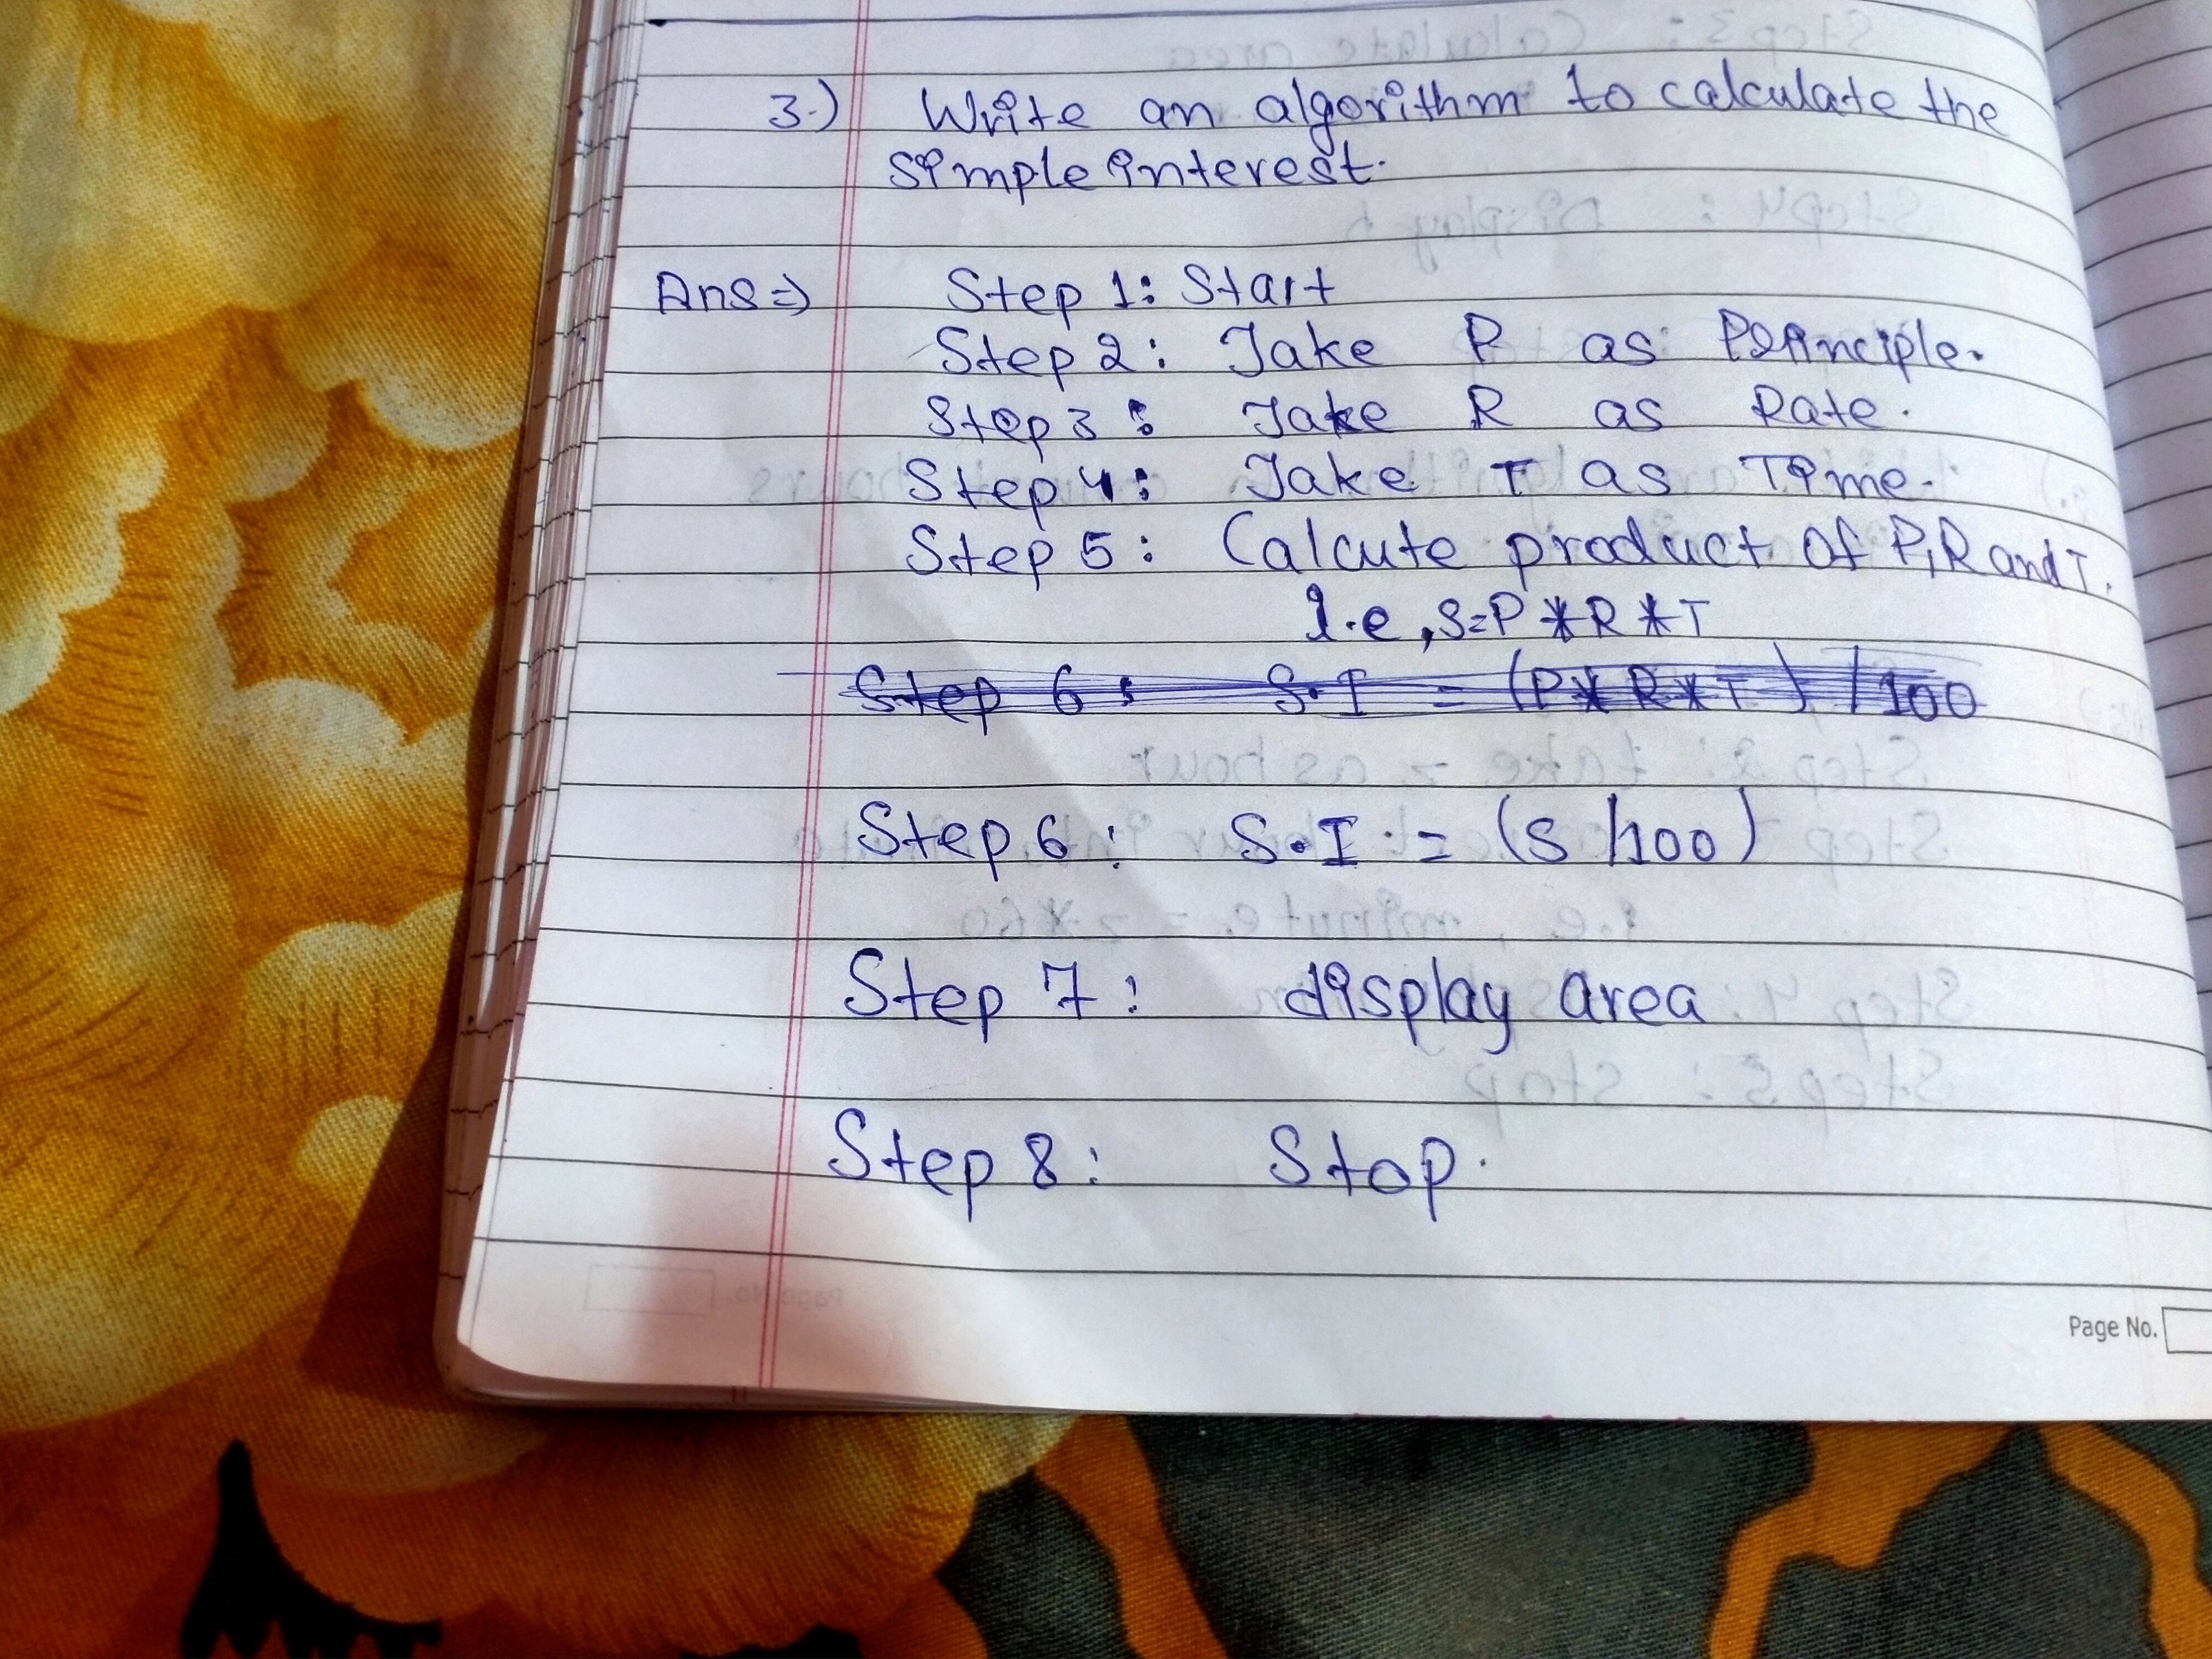 3.) Write an algorithm to calculate the
simple interest.
Ans⇒ Step 1: Start
Step 2: Take P as Principle.
Step 3: Take R as Rate.
Step 4: Take T as Time.
Step 5: Calcute product of P, R and T.
i.e, S=P*R*T
Step 6: S.I = (P*R*T)/100
Step 6: S.I = (S/100)
Step 7: display area
Step 8: Stop.
Page No.